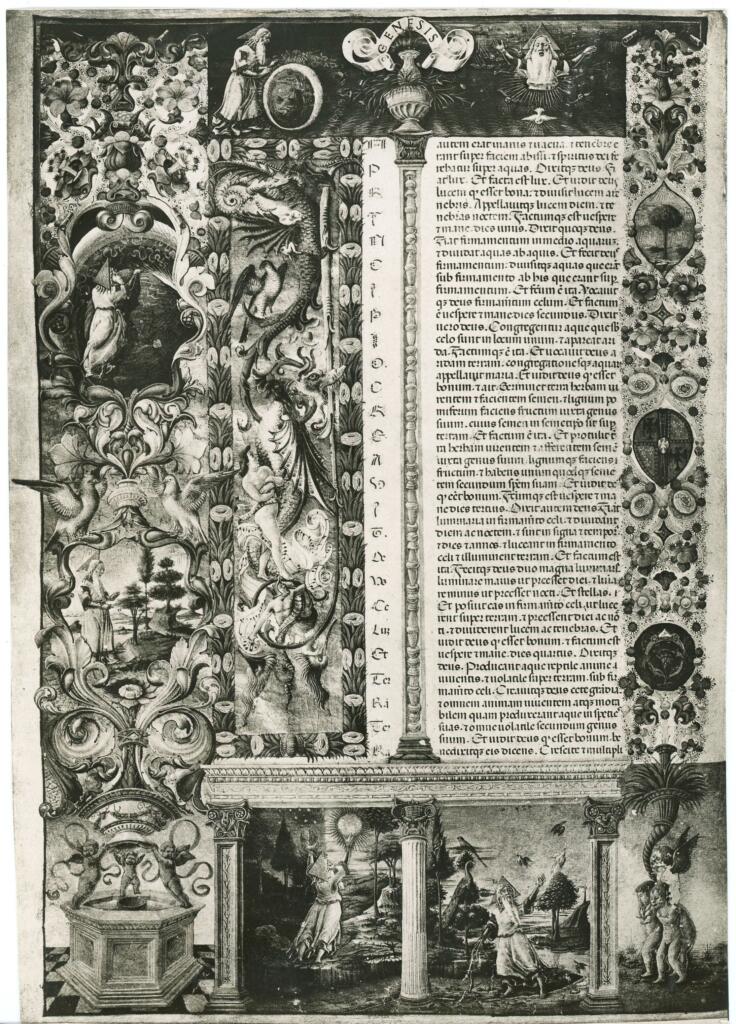 GENESIS
PRINCIPIO CREAVIT DEVS
Ce
Lu
Et
Ter
Ra
Ter
autem erat inanis ⁊ uacua. ⁊ tenebre e
rant super faciem abissi. ⁊ spiritus dei fe
rebatur super aquas. Dixitq deus. Fi
at lux. Et facta est lux. Et uidit deus
lucem q esset bona. ⁊ diuisit lucem a te
nebris. Appellauitq lucem diem. ⁊ te
nebras noctem. Factumq est uespere
⁊ mane dies unus. Dixit quoq deus.
Fiat firmamentum in medio aquarum
⁊ diuidat aquas ab aquis. Et fecit deus
firmamentum. diuisitq aquas que erant
sub firmamento ab his que erant super
firmamentum. Et factum e ita. Vocauit
q deus firmamentum celum. Et factum
e uespere ⁊ mane dies secundus. Dixit
uero deus. Congregentur aque que sub
celo sunt in locum unum. ⁊ apareat ari
da. Factumq e ita. Et uocauit deus a
ridam terram. congregationesq aquarum
appellauit maria. Et uidit deus q esset
bonum. ⁊ ait. Germinet terra herbam ui
rentem ⁊ facientem semen. ⁊ lignum po
miferum faciens fructum iuxta genus
suum. cuius semen in semetipso sit super
terram. Et factum e ita. Et protulit ter
ra herbam uirentem ⁊ afferentem semen
iuxta genus suum. lignumq faciens
fructum. ⁊ habens unum quodq semen
tem secundum spem suam. Et uidit deus
q eet bonum. Factumq est uespere ⁊ ma
ne dies tertius. Dixit autem deus. Fiat
luminaria in firmamento celi. ⁊ diuidant
diem ac noctem. ⁊ sint in signa ⁊ tempora
⁊ dies ⁊ annos. ⁊ luceant in firmamento
celi ⁊ illuminent terram. Et factum est
ita. Fecitq deus duo magna luminaria.
luminare maius ut preesset diei. ⁊ lumina
re minus ut preesset nocti. Et stellas. ⁊
Et posuit eas in firmamento celi. ut luce
rent super terram. ⁊ preessent diei ac no
cti. ⁊ diuiderent lucem ac tenebras. Et
uidit deus q esset bonum. ⁊ factum est
uespere ⁊ mane. dies quartus. Dixitq
deus. Producant aque reptile anime u
iuentis. ⁊ uolatile super terram. sub fir
mamento celi. Creauitq deus cete grandia.
⁊ omnem animam uiuentem atq mota
bilem quam produxerant aque in species
suas. ⁊ omne uolatile secundum genus
suum. Et uidit deus q esset bonum. be
nedixitq eis dicens. Crescite ⁊ multipli